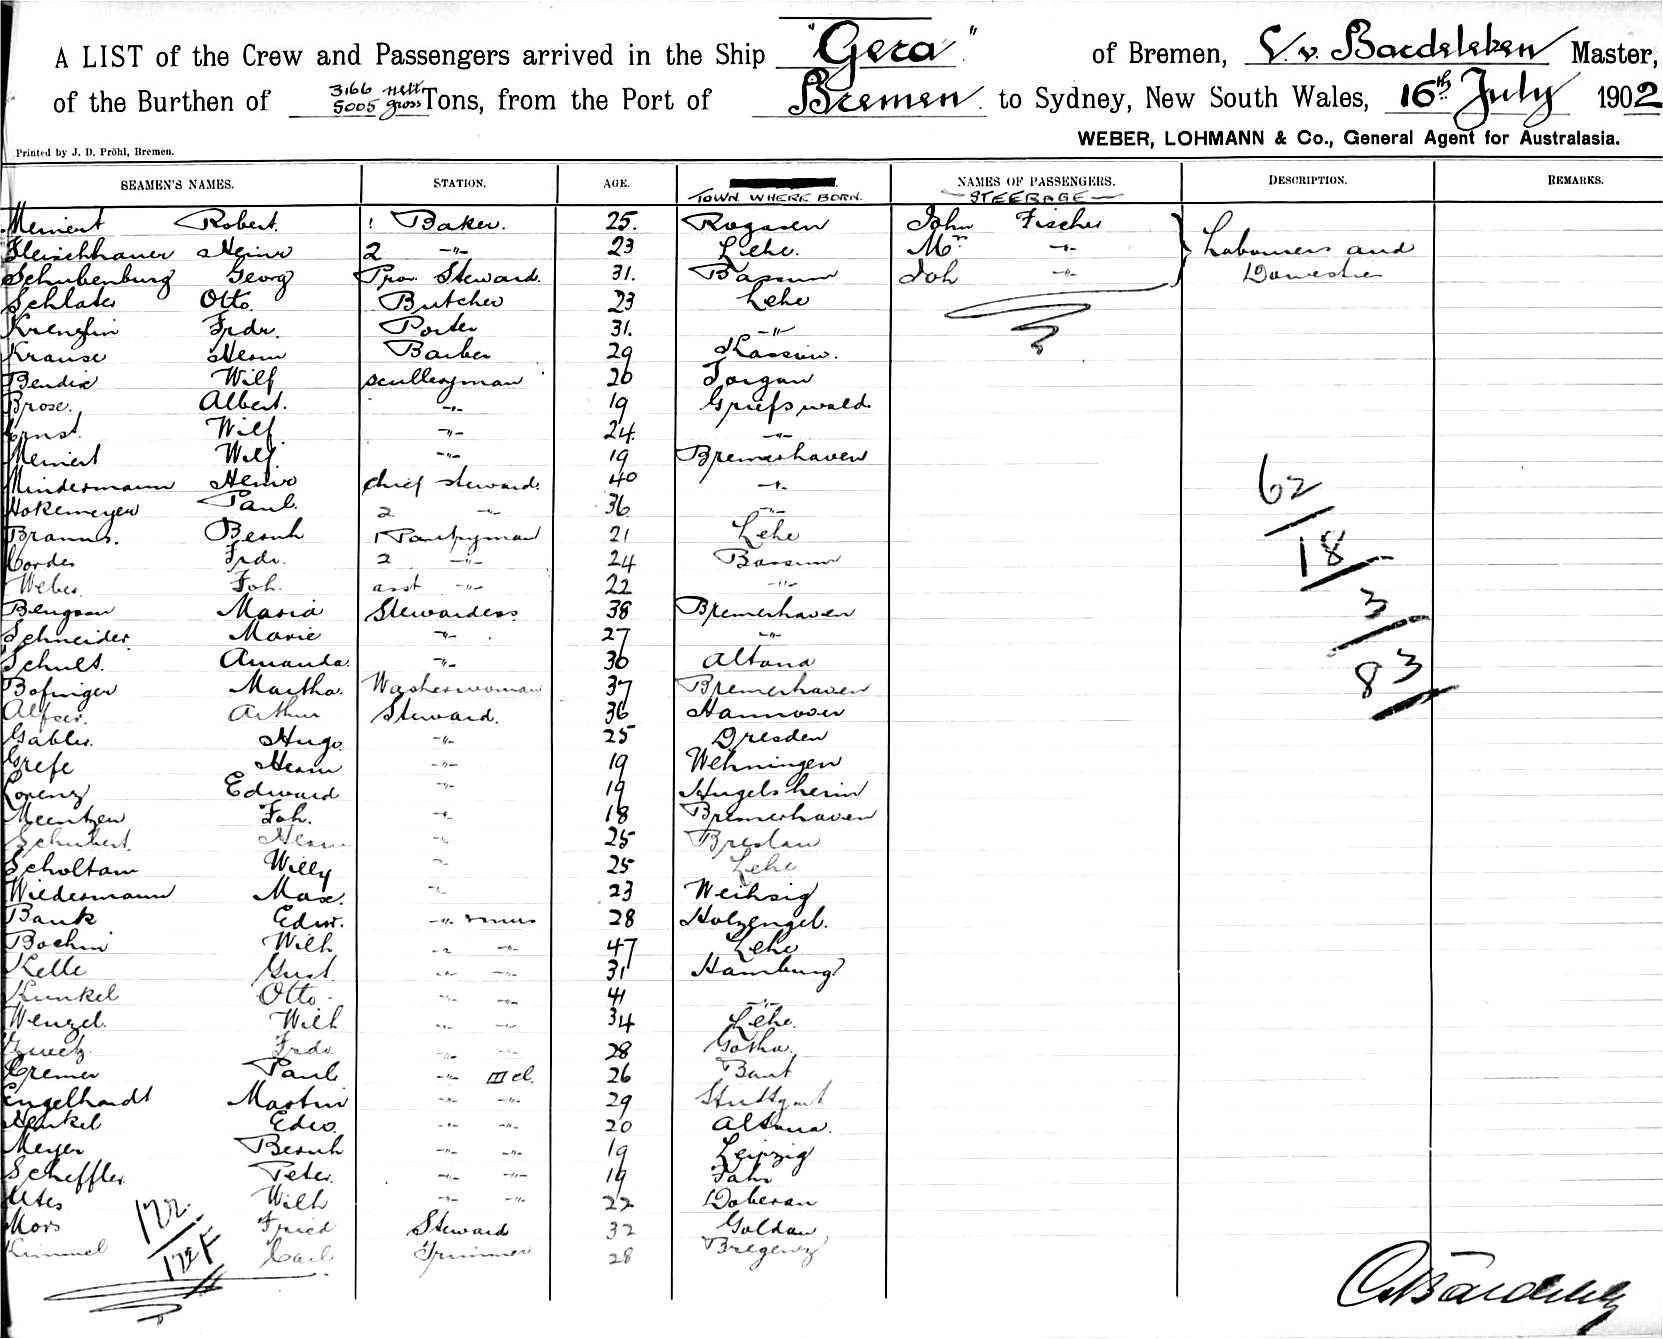 A LIST of the Crew and Passengers arrived in the Ship "Gera" of Bremen, v. Bardeleben Master,
of the Burthen of 3166 nett 5005 gross Tons, from the Port of Bremen to Sydney, New South Wales, 16th July 1902
WEBER, LOHMANN & Co., General Agent for Australasia.
Printed by J. D. Pröhl, Bremen.
SEAMEN'S NAMES. STATION. AGE. TOWN WHERE BORN. NAMES OF PASSENGERS. DESCRIPTION. REMARKS.
STEERAGE
Meinert Robert. 1 Baker. 25. Rogasen John Fischer
Fleischhauer Heinr 2 -"- 23 Lehe. Mrs -"- Labourers and
Schulenburg Georg Prov. Steward. 31. Bassum Joh -"- Domestics
Schlater Otto Butcher 23 Lehe
Krenzlin Frdr. Porter 31. -"-
Krause Herm Barber 29
Bendix Wilh sculleryman 26 Torgau
Brose. Albert. -"- 19 Greifswald
Ernst. Wilh -"- 24. -"-
Meinert Wilh -"- 19 Bremerhaven
Mindermann Heinr chief steward. 40 -"-
Hokemeyer Paul. 2 -"- 36 -"-
Branns. Bernh 1 Pantryman 21 Lehe
Cordes Frdr. 2 -"- 24 Bassum
Weber. Joh. asst -"- 22 -"-
Maria Stewardess. 38 Bremerhaven
Schneider. Marie -"- 27 -"-
Schult. Amanda. -"- 30 Altona
Bofinger Martha. Washerwoman 37 Bremerhaven
Arthur Steward. 36 Hannover
Gabler. Hugo. -"- 25 Dresden
Grefe Herm -"- 19 Wehningen
Lorenz Edward -"- 19 Hugelsheim
Meentzen Joh. -"- 18 Bremerhaven
Schubert. Herm -"- 25 Breslau
Scholtam Willy -"- 25 Lehe
Wiedermann Max. -"- 23 Weihsig
Bank Edw. -"- 28 Holzengel.
Wilh -"- -"- 47 Lehe
Kelle Gust. -"- -"- 31 Hamburg
Kunkel Otto -"- -"- 41 -"-
Wenzel. Wilh -"- -"- 34 Lehe.
Frdr -"- -"- 28 Gotha.
Cremer Paul -"- III cl. 26 Bant
Engelhardt Martin -"- -"- 29 Stuttgart
Henkel Edw. -"- -"- 20 Altona.
Meyer Bernh -"- -"- 19 Leipzig
Scheffler Peter. -"- -"- 19 Fahr
Utes Wilh -"- -"- 22 Doberan
Mors Fried Steward 32 Goldau
Kimmel Carl Trimmer 28 Bregenz
62
18
3
83
122
122 F